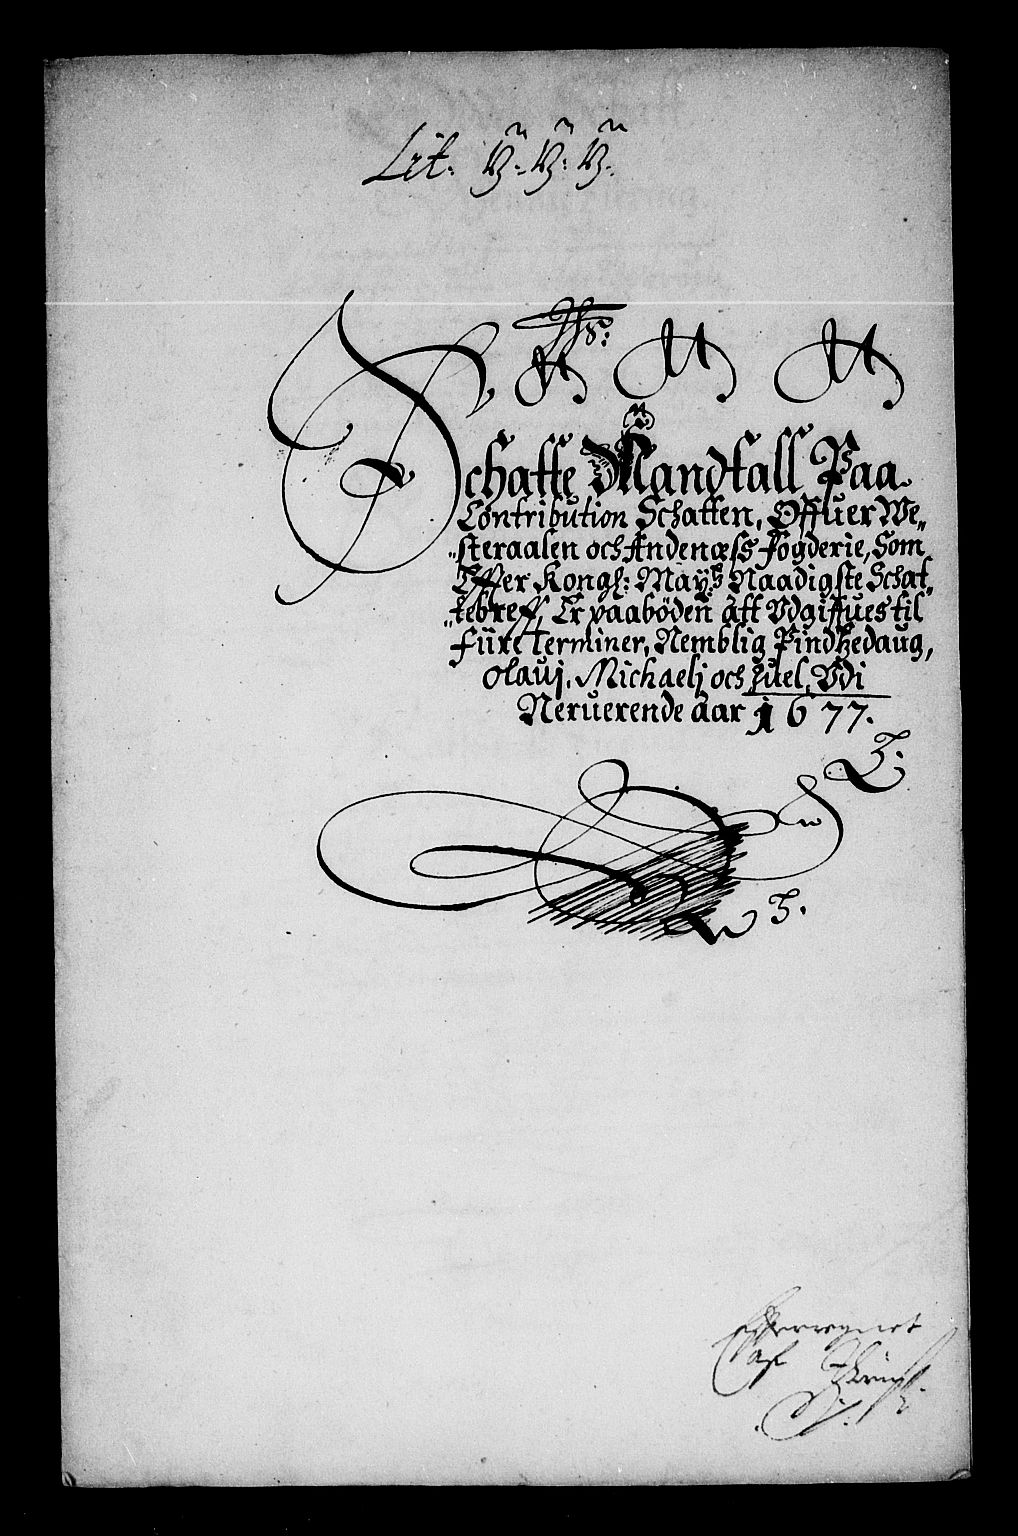 Lit: V: V: V:
Schatte Mandtall Paa
Contribution Schatten, Offuer We„
„steraalen och Andenæss Fogderie, Som
Effer Kongl: Maÿ:ts Naadigste Schat„
„tebreff, Er paaböden att Vdgiffues til
fiire Terminer, Nemblig Pindtzedaug,
olauj, Michaelj och Juel, Vdi
Neruerende aar 1677.
Efterregnet
af